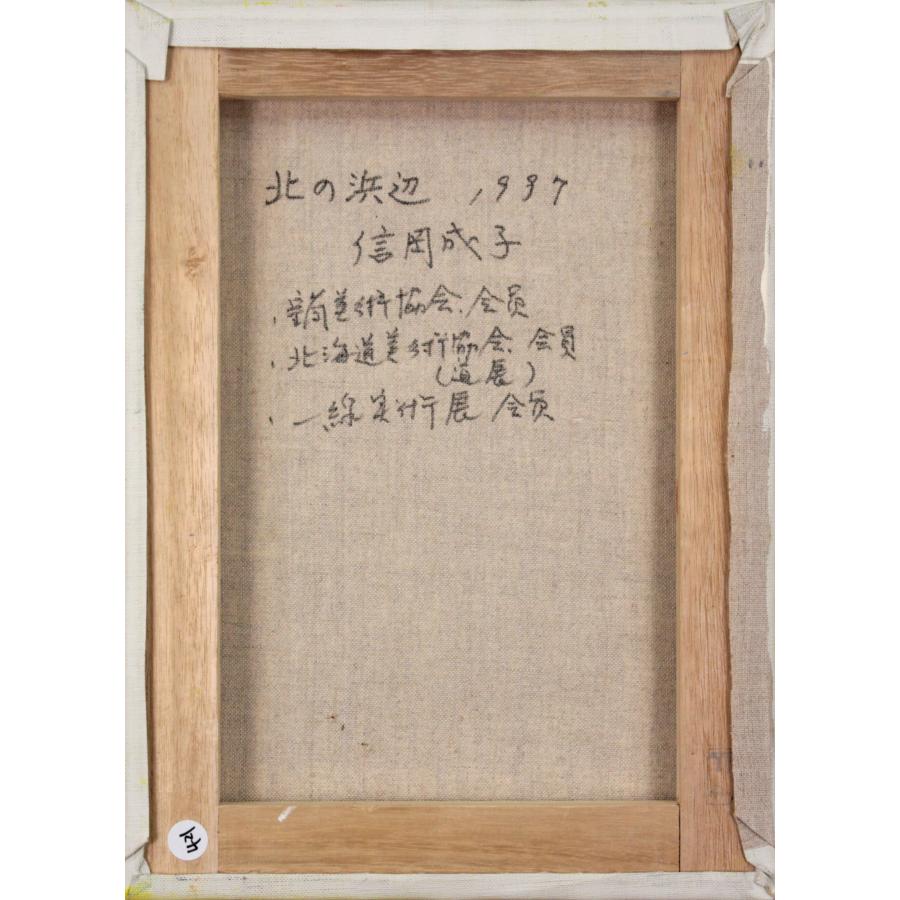 北の浜辺 1997
信岡成子
・室蘭美術協会.会員
・北海道美術協会.会員
(道展)
・一線美術展 会員